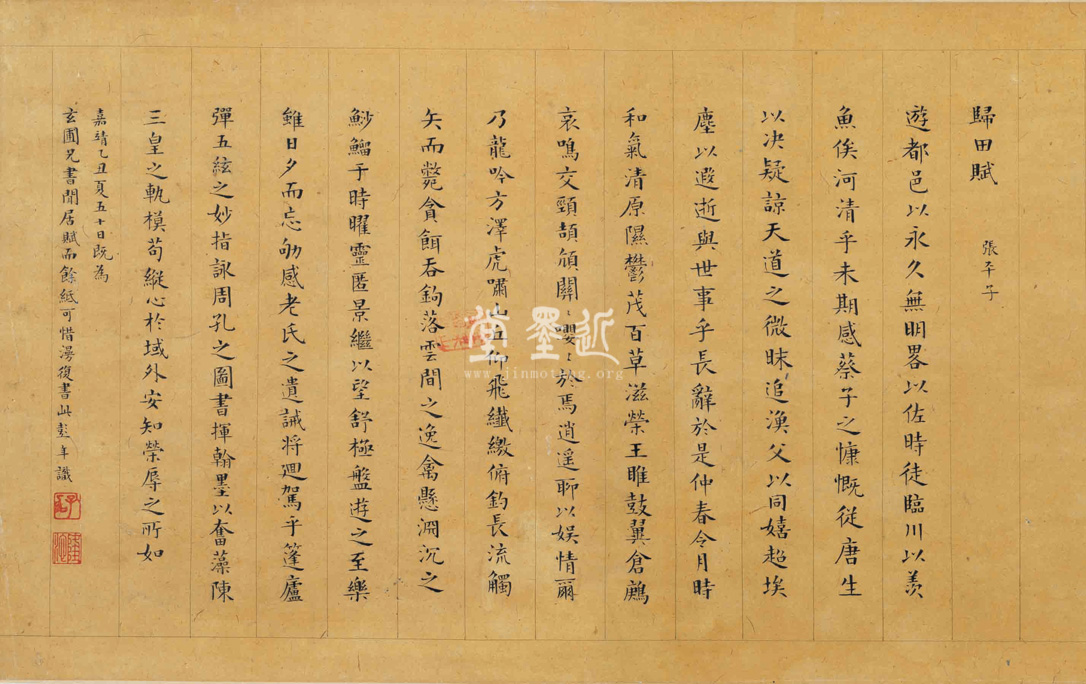 歸田賦
張平子
遊都邑以永久無明畧以佐時徒臨川以羨
魚俟河清乎未期感蔡子之慷慨從唐生
以决疑諒天道之微昧追漁父以同嬉超埃
塵以遐逝與世事乎長辭於是仲春令月時
和氣清原隰鬱茂百草滋榮王雎鼓翼倉鶊
哀鳴交頸頡頏關〻嚶〻於焉逍遥聊以娱情爾
乃龍吟方澤虎嘯山丘仰飛纖繳俯釣長流觸
矢而斃貪餌吞鉤落雲間之逸禽懸淵沉之
魦鰡于時曜靈匿景繼以望舒極盤遊之至樂
雖日夕而忘劬感老氏之遺誡將迴駕乎蓬廬
彈五絃之妙指詠周孔之圖書揮翰墨以奮藻陳
三皇之軌模苟縱心於域外安知榮辱之所如
嘉靖乙丑夏五十日既為
玄圃兄書閒居賦而餘紙可惜漫復書此彭年識
近墨堂
www.jinmotang.org